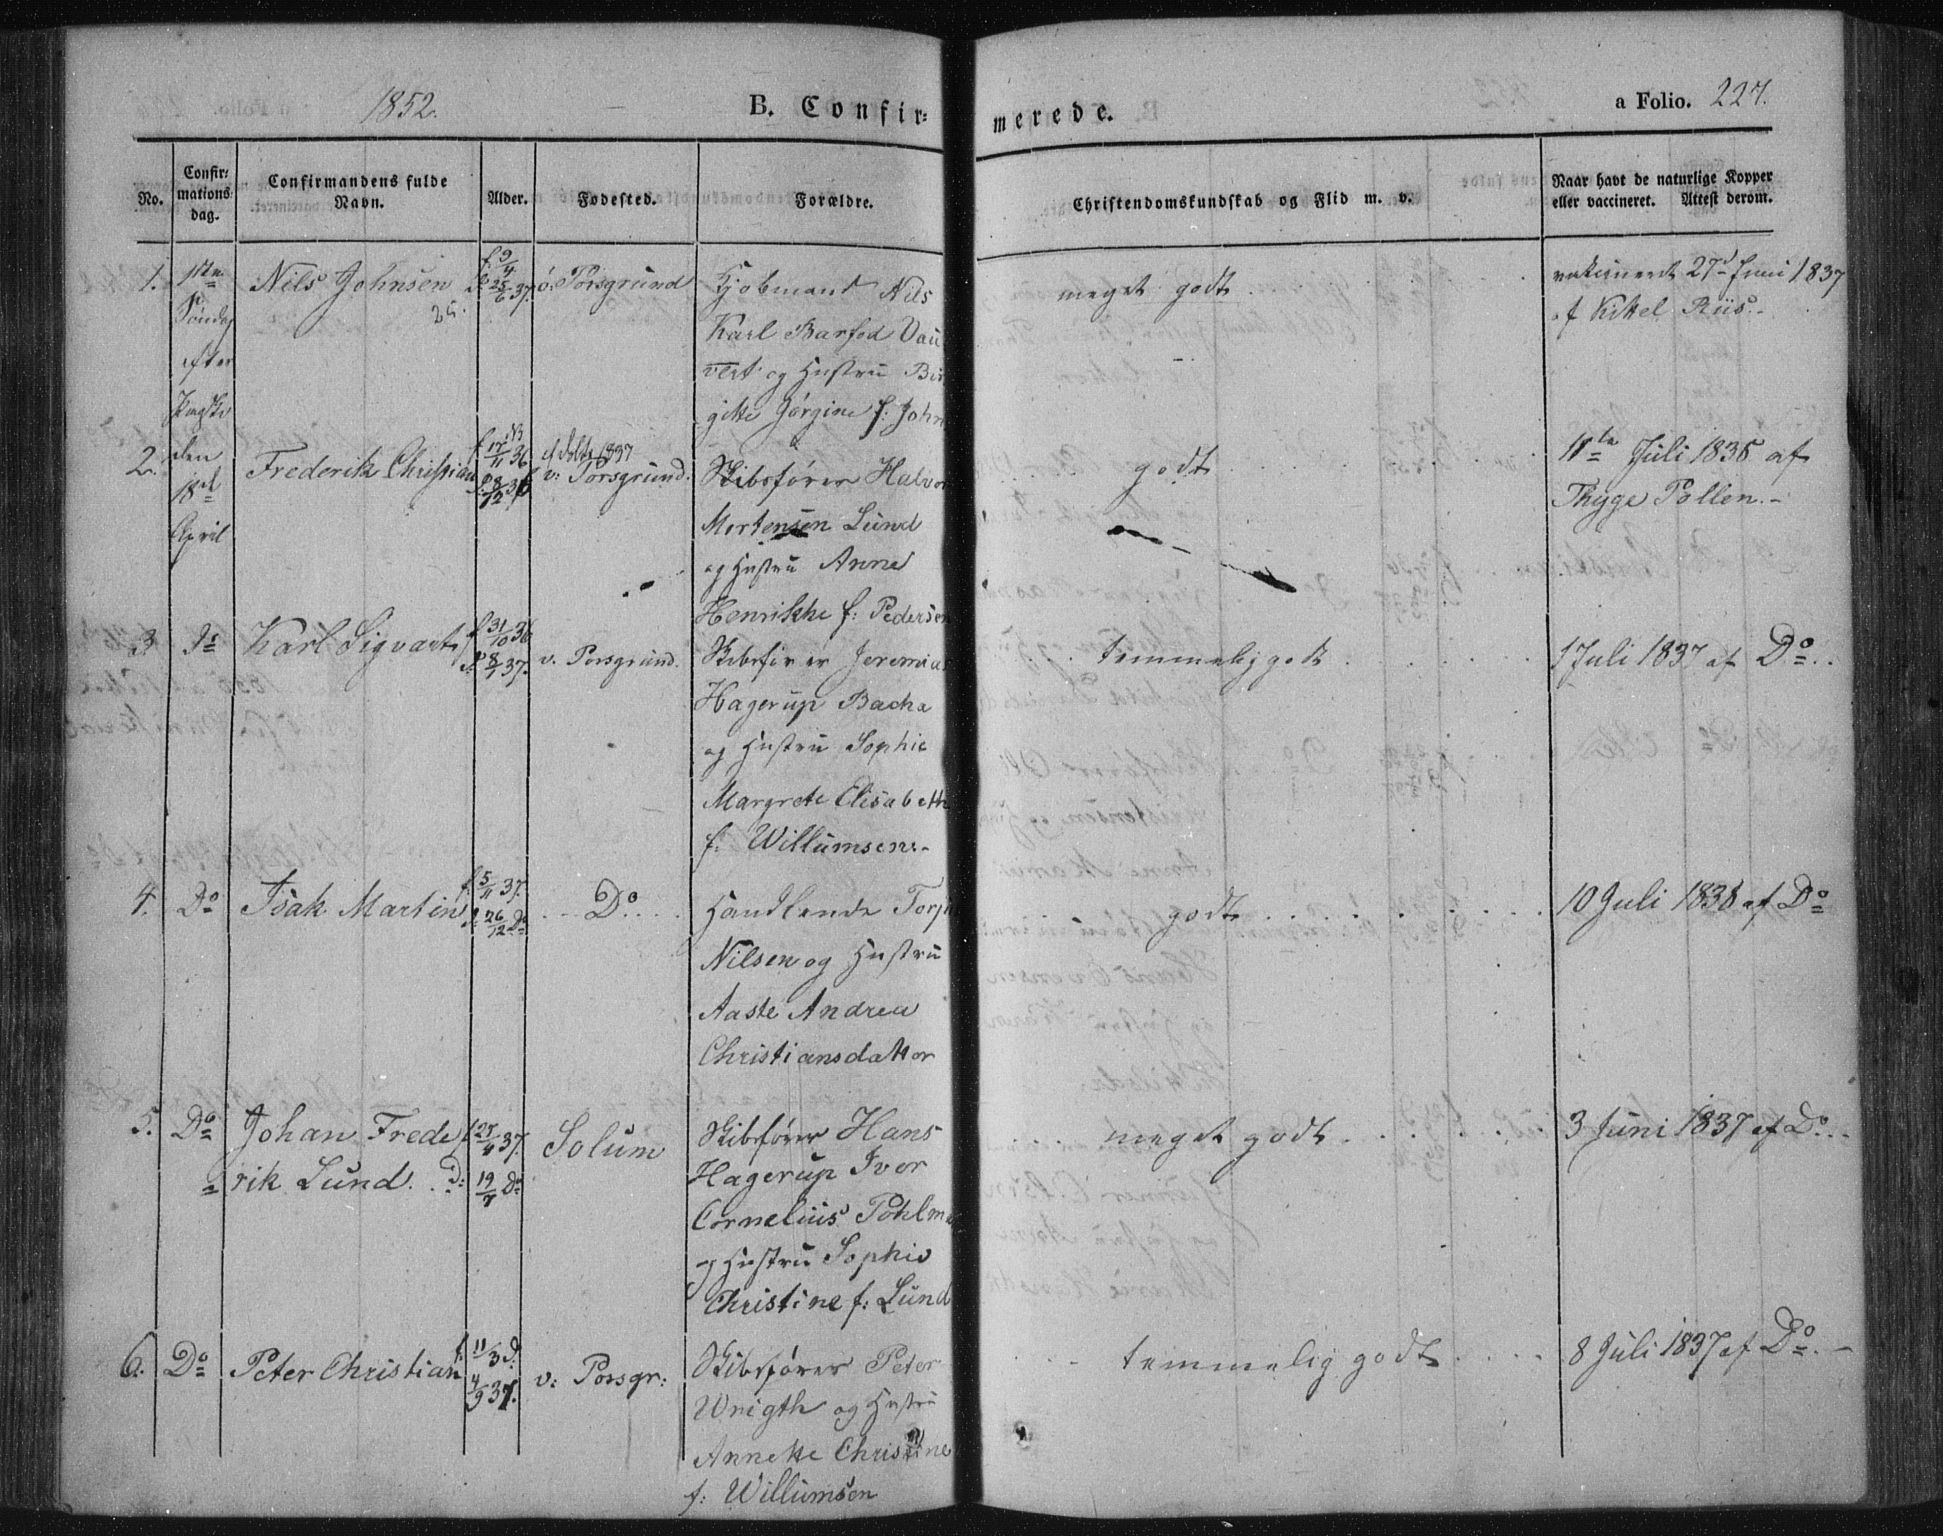 1852.
B. Confir=
merede.
a Folio. 227.
No.
Confir=
mations
dag.
Confirmandens fulde
Navn.
Alder.
Fødested.
Forældre.
Christendomskundskab og Flid m. v.
Naar havt de naturlige Kopper
eller vaccineret. Attest derom.
1.
1ste
Søndag
efter
Paaske
den
18d
April
Nils Johnsen
f 9/4
d 25/6 37.
ø: Porsgrund
Kjøbmand Nils
Karl Barfod Vau
vert og Hustru Bir
gitte Jørgine f: John
meget godt
vakcineret 27d Juni 1837
af Kittel Riis.-
2.
Frederik Christian
f 17/11 36
d 8/12 36
v: Porsgrund.
Skibsfører Halvor
Mortensen Lund
og Hustru Anne
Henrikke f: Pedersen
godt
11te Juli 1838 af
Thyge Pollen.-
3
Do
Karl Sigvart
f 31/10 36
d 8/1 37.
v. Porsgrund.
Skibsfører Jeremias
Hagerup Bacha
og Hustru Sophie
Margrete Elisabeth
f: Willumsen.-
temmelig godt
1 Juli 1837 af Do..
4.
Do
Isak Martin
f 5/11 37.
d 26/12 Do
Do
Handlende Torje
Nilsen og Hustru
Aaste Andrea
Christiansdatter
godt
10 Juli 1838 af Do
5.
Do
Johan Frede
rik Lund.
f 25/4 37.
D: 19/7 Do
Solum
Skibsfører Hans
Hagerup Iver
Cornelius Pohlma
og Hustru Sophie
Christine f: Lund
meget godt
3 Juni 1837 af Do..
6.
Do
Peter Christian
f. 11/3 d.
4/9 37.
v: Porsgr:
Skibsfører Peter
Wrigth og Hustru
Annette Christine
f: Willumsen
temmelig godt
8 Juli 1837 af Do.-